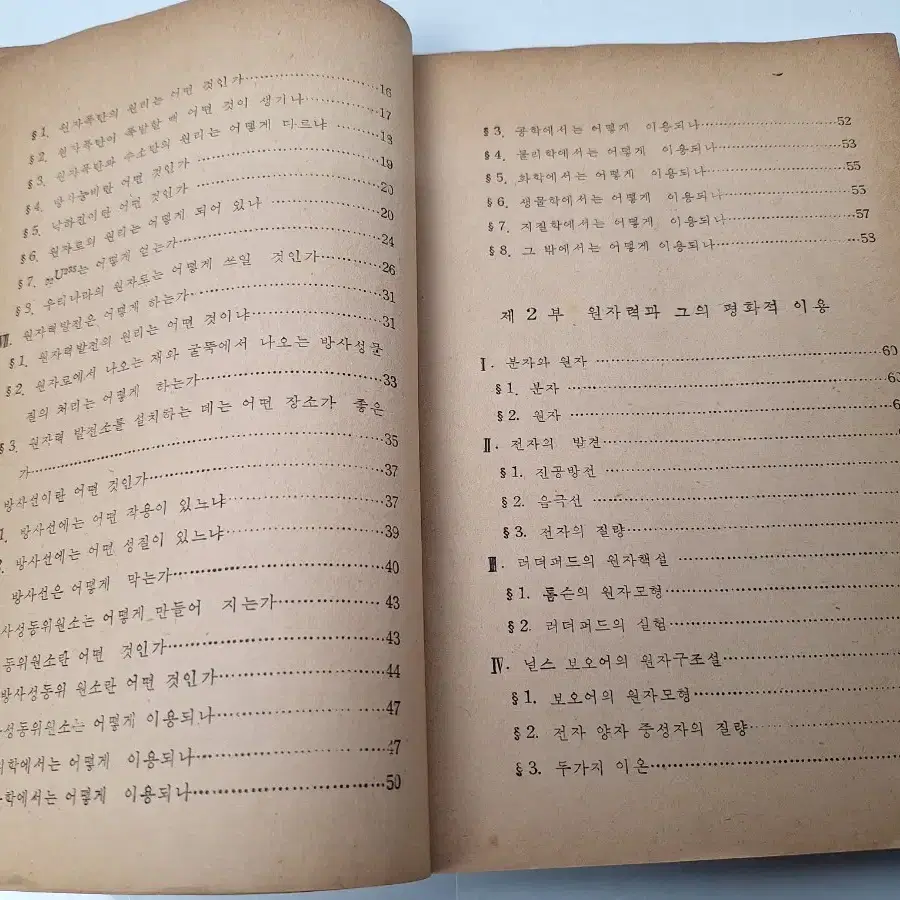 §1. 원자폭탄의 원리는 어떤 것인가 16
§2. 원자폭탄이 폭발할 때 어떤 것이 생기나 17
§3. 원자폭탄과 수소탄의 원리는 어떻게 다르냐 18
§4. 방사능비란 어떤 것인가 19
§5. 낙하진이란 어떤 것인가 20
§6. 원자로의 원리는 어떻게 되어 있나 20
§7. ₉₂U²³⁵는 어떻게 얻는가 24
§8. 우리나라의 원자로는 어떻게 쓰일 것인가 26
Ⅶ. 원자력발전은 어떻게 하는가 31
§1. 원자력발전의 원리는 어떤 것이냐 31
§2. 원자로에서 나오는 재와 굴뚝에서 나오는 방사성물
질의 처리는 어떻게 하는가 33
§3. 원자력 발전소를 설치하는 데는 어떤 장소가 좋은
가 35
방사선이란 어떤 것인가 37
1. 방사선에는 어떤 작용이 있느냐 37
방사선에는 어떤 성질이 있느냐 39
방사선은 어떻게 막는가 40
사성동위원소는 어떻게 만들어 지는가 43
동위원소란 어떤 것인가 43
방사성동위 원소란 어떤 것인가 44
사성동위원소는 어떻게 이용되나 47
학에서는 어떻게 이용되나 47
학에서는 어떻게 이용되나 50
§3. 공학에서는 어떻게 이용되나 52
§4. 물리학에서는 어떻게 이용되나 53
§5. 화학에서는 어떻게 이용되나 55
§6. 생물학에서는 어떻게 이용되나 55
§7. 지질학에서는 어떻게 이용되나 57
§8. 그 밖에서는 어떻게 이용되나 58
제 2 부 원자력과 그의 평화적 이용
Ⅰ. 분자와 원자 60
§1. 분자 6
§2. 원자 6
Ⅱ. 전자의 발견
§1. 진공방전
§2. 음극선
§3. 전자의 질량
Ⅲ. 러더퍼드의 원자핵설
§1. 톰슨의 원자모형
§2. 러더퍼드의 실험
Ⅳ. 닐스 보오어의 원자구조설
§1. 보오어의 원자모형
§2. 전자 양자 중성자의 질량
§3. 두가지 이온